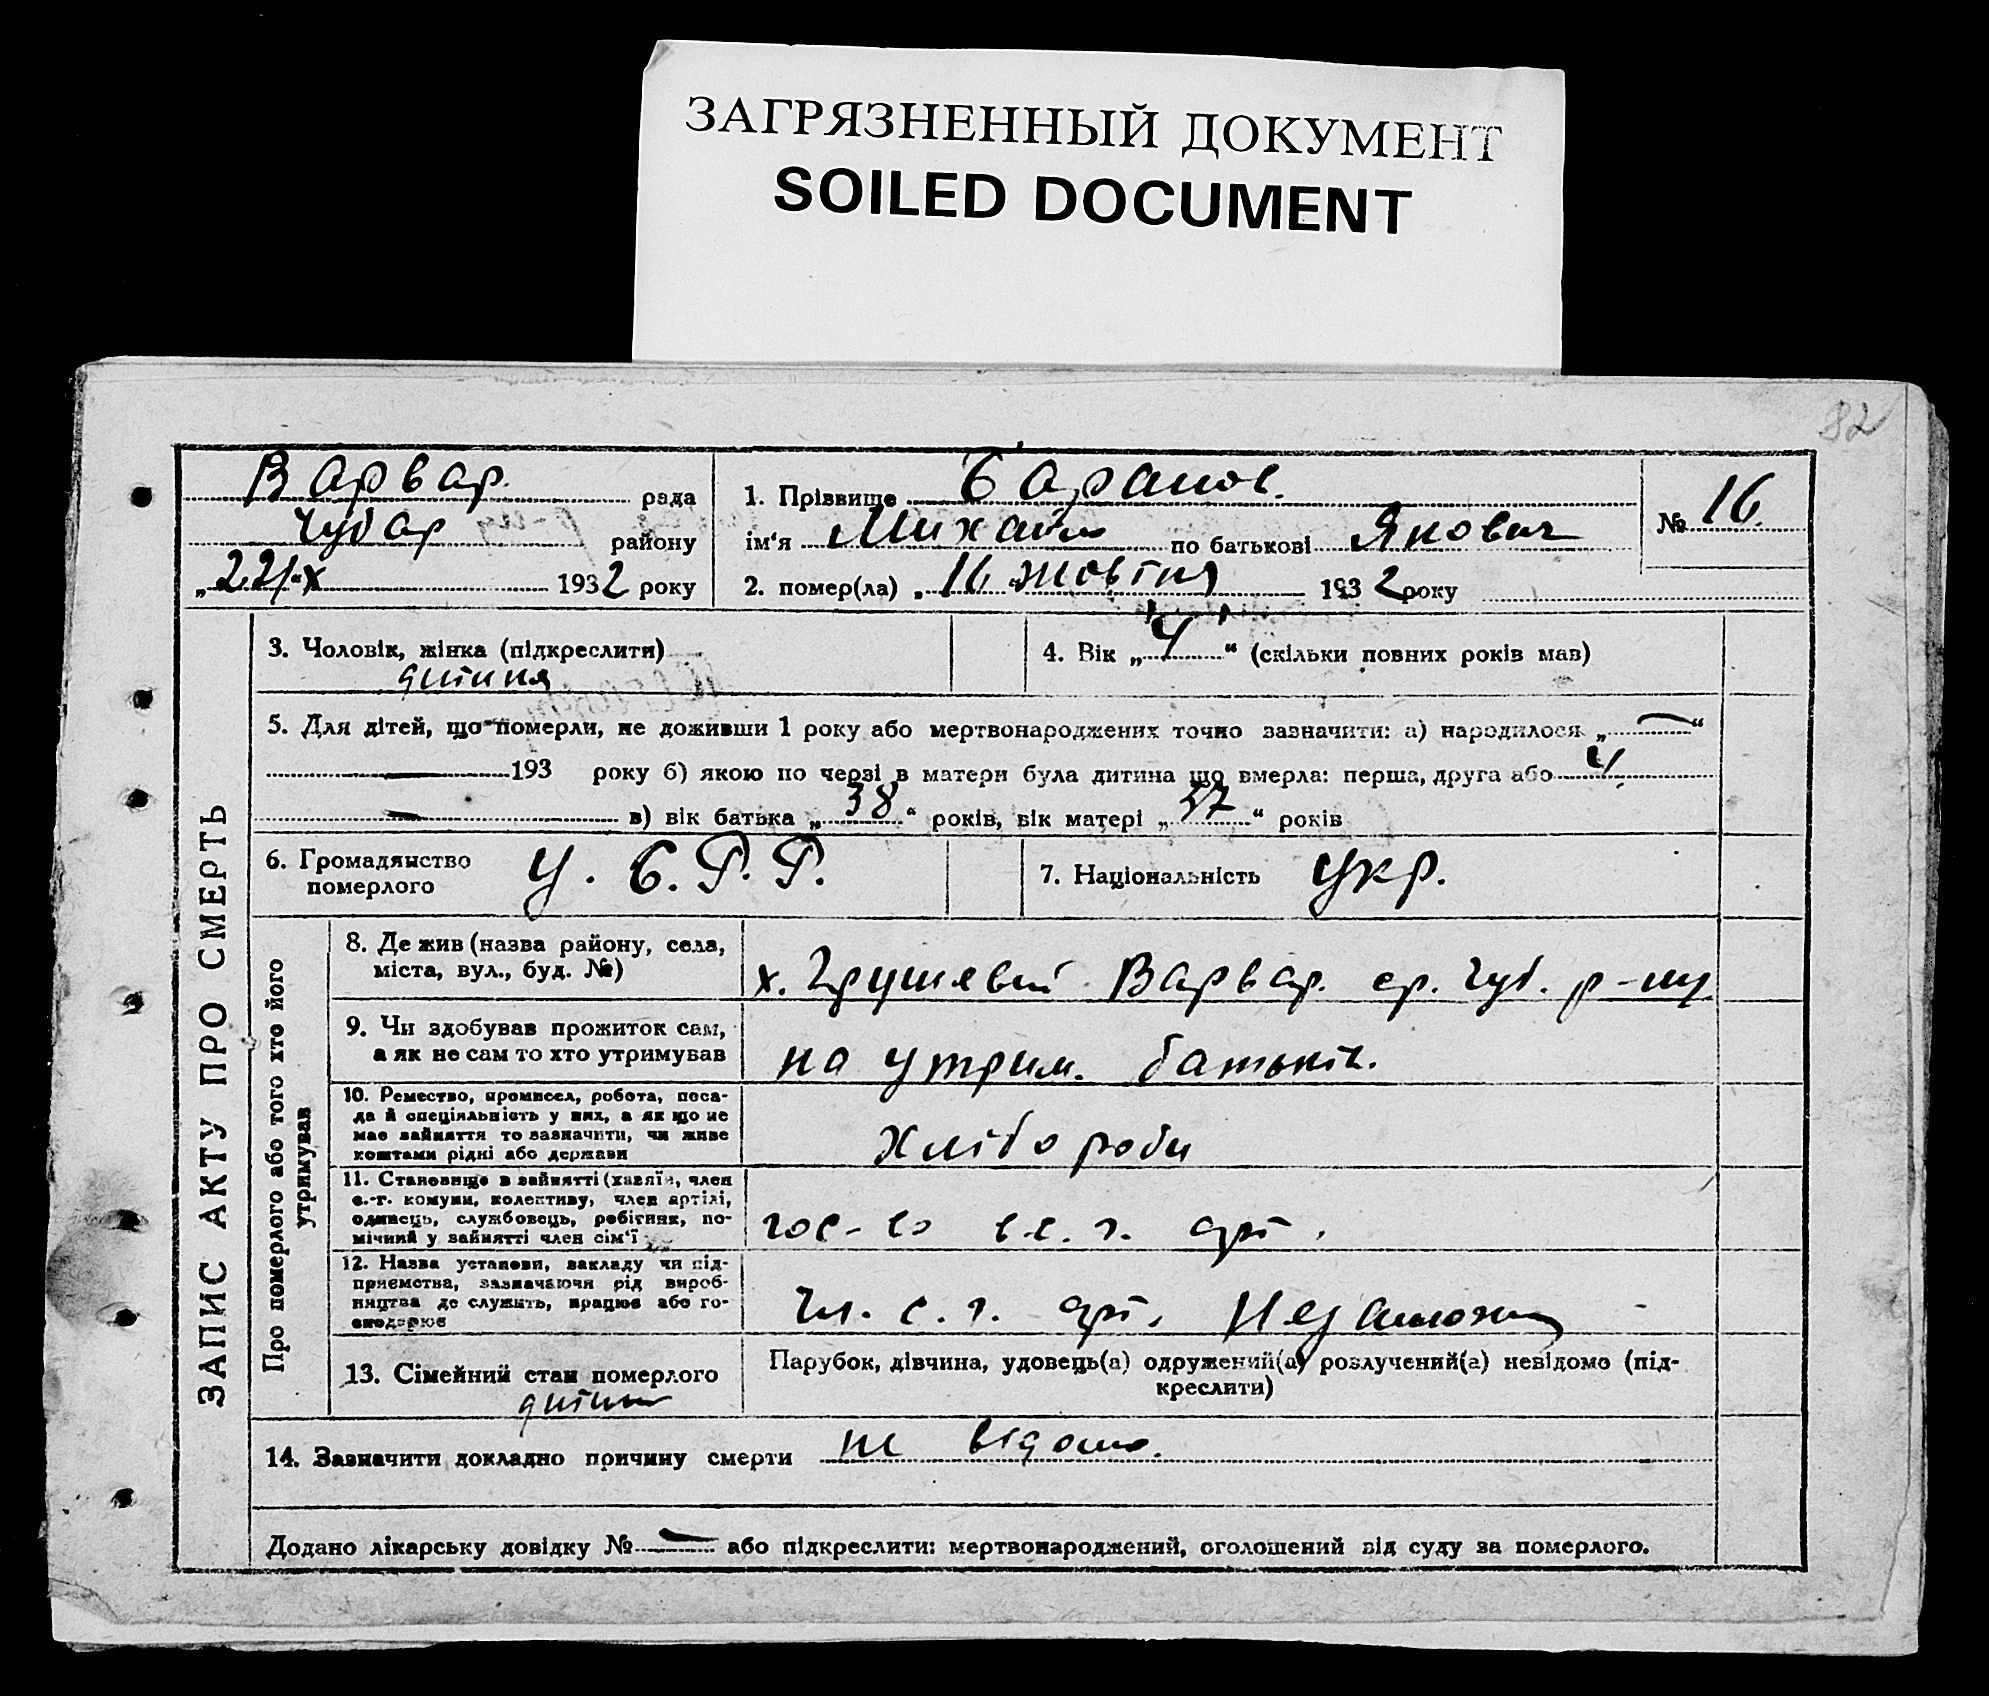 ЗАГРЯЗНЕННЫЙ ДОКУМЕНТ
SOILED DOCUMENT
82
Варвар. рада
Чубар району
„22/X 1932 року
1. Прізвище Баранов.
ім'я Михайло по батькові Якович
2. помер(ла) „16 жовтня 1932 року
№ 16
3. Чоловік, жінка (підкреслити)
дитина
4. Вік „4“ (скільки повних років мав)
5. Для дітей, що померли, не доживши 1 року або мертвонароджених точно зазначити: а) народилося „—“
— 193 року б) якою по черзі в матери була дитина що вмерла: перша, друга або 4
— в) вік батька „38“ років, вік матері „37“ років
6. Громадянство
померлого
У. С. Р. Р.
7. Національність Укр.
ЗАПИС АКТУ ПРО СМЕРТЬ
Про померлого або того хто його
утримував
8. Де жив (назва району, села,
міста, вул., буд. №)
х. Грушевий Варвар. ср. Чуб. р-ну
9. Чи здобував прожиток сам,
а як не сам то хто утримував
на утрим. батьків.
10. Ремество, промисел, робота, поса-
да й спеціяльність у них, а як що не
має зайняття то зазначити, чи живе
коштами рідні або держави
Хлібороби
11. Становище в зайнятті (хазяїн, член
с.-г. комуни, колективу, член артілі,
одинець, службовець, робітник, по-
мічний у зайнятті член сім'ї
гос-во в с. г. арт.
12. Назва установи, закладу чи під-
приємства, зазначаючи рід вироб-
ництва де служить, працює або го-
сподарює
Чл. с. г. арт. Незаможник
13. Сімейний стан померлого
дитина
Парубок, дівчина, удовець(а) одружений(а) розлучений(а) невідомо (під-
креслити)
14. Зазначити докладно причину смерти не відомо.
Додано лікарську довідку № — або підкреслити: мертвонароджений, оголошений від суду за померлого.